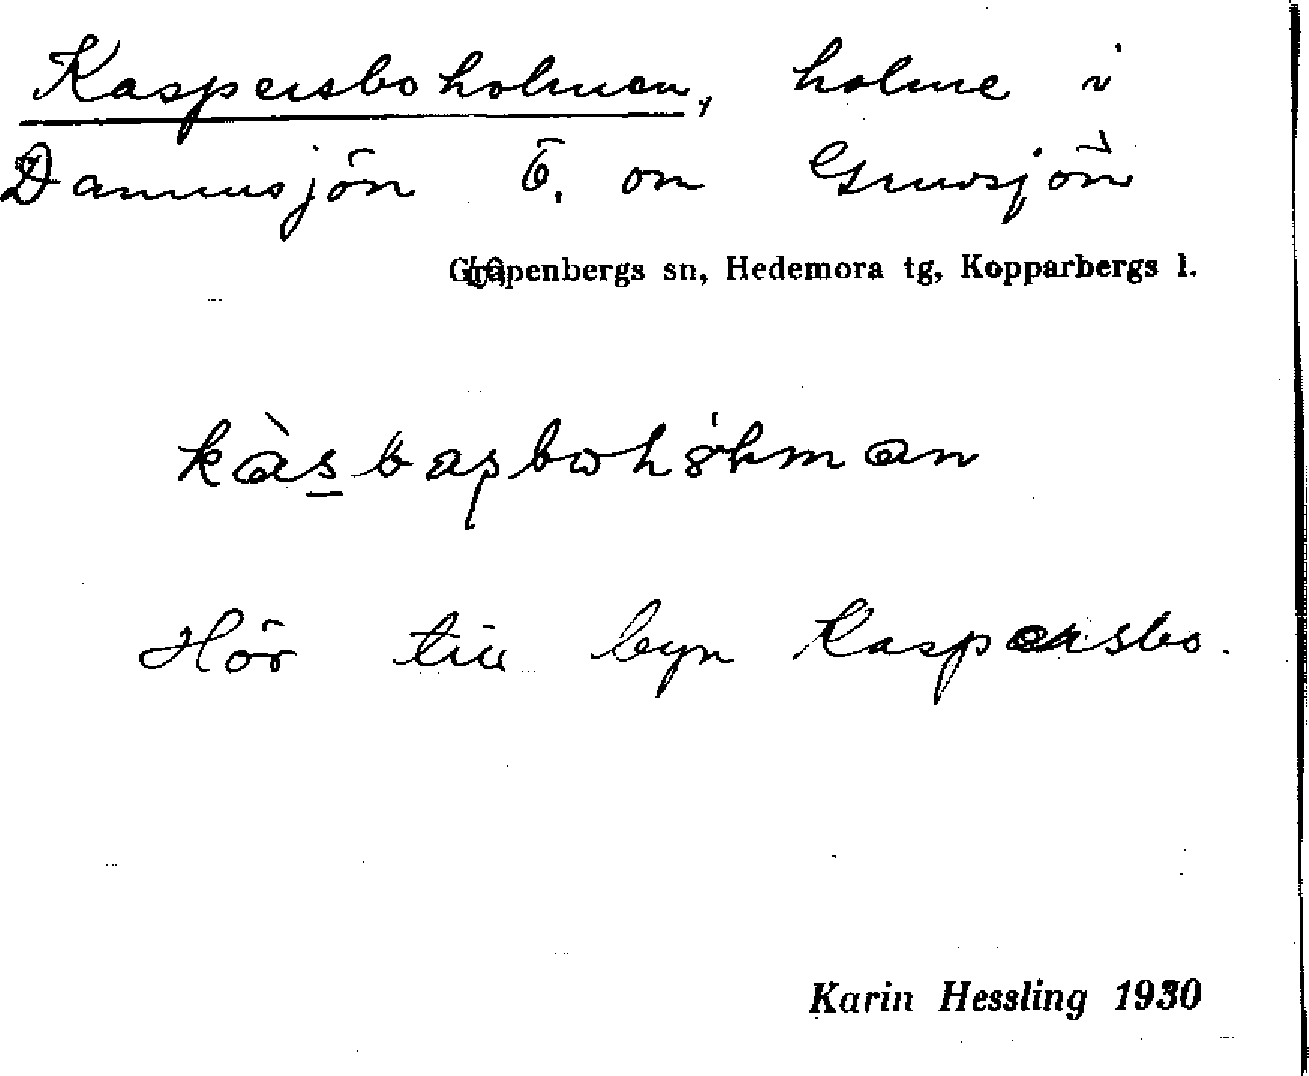 Kaspersboholmen, holme i
Dammsjön Ö. om Gruvsjön
Garpenbergs sn, Hedemora tg, Kopparbergs l.
Hör till byn Kaspersbo.
Karin Hessling 1930